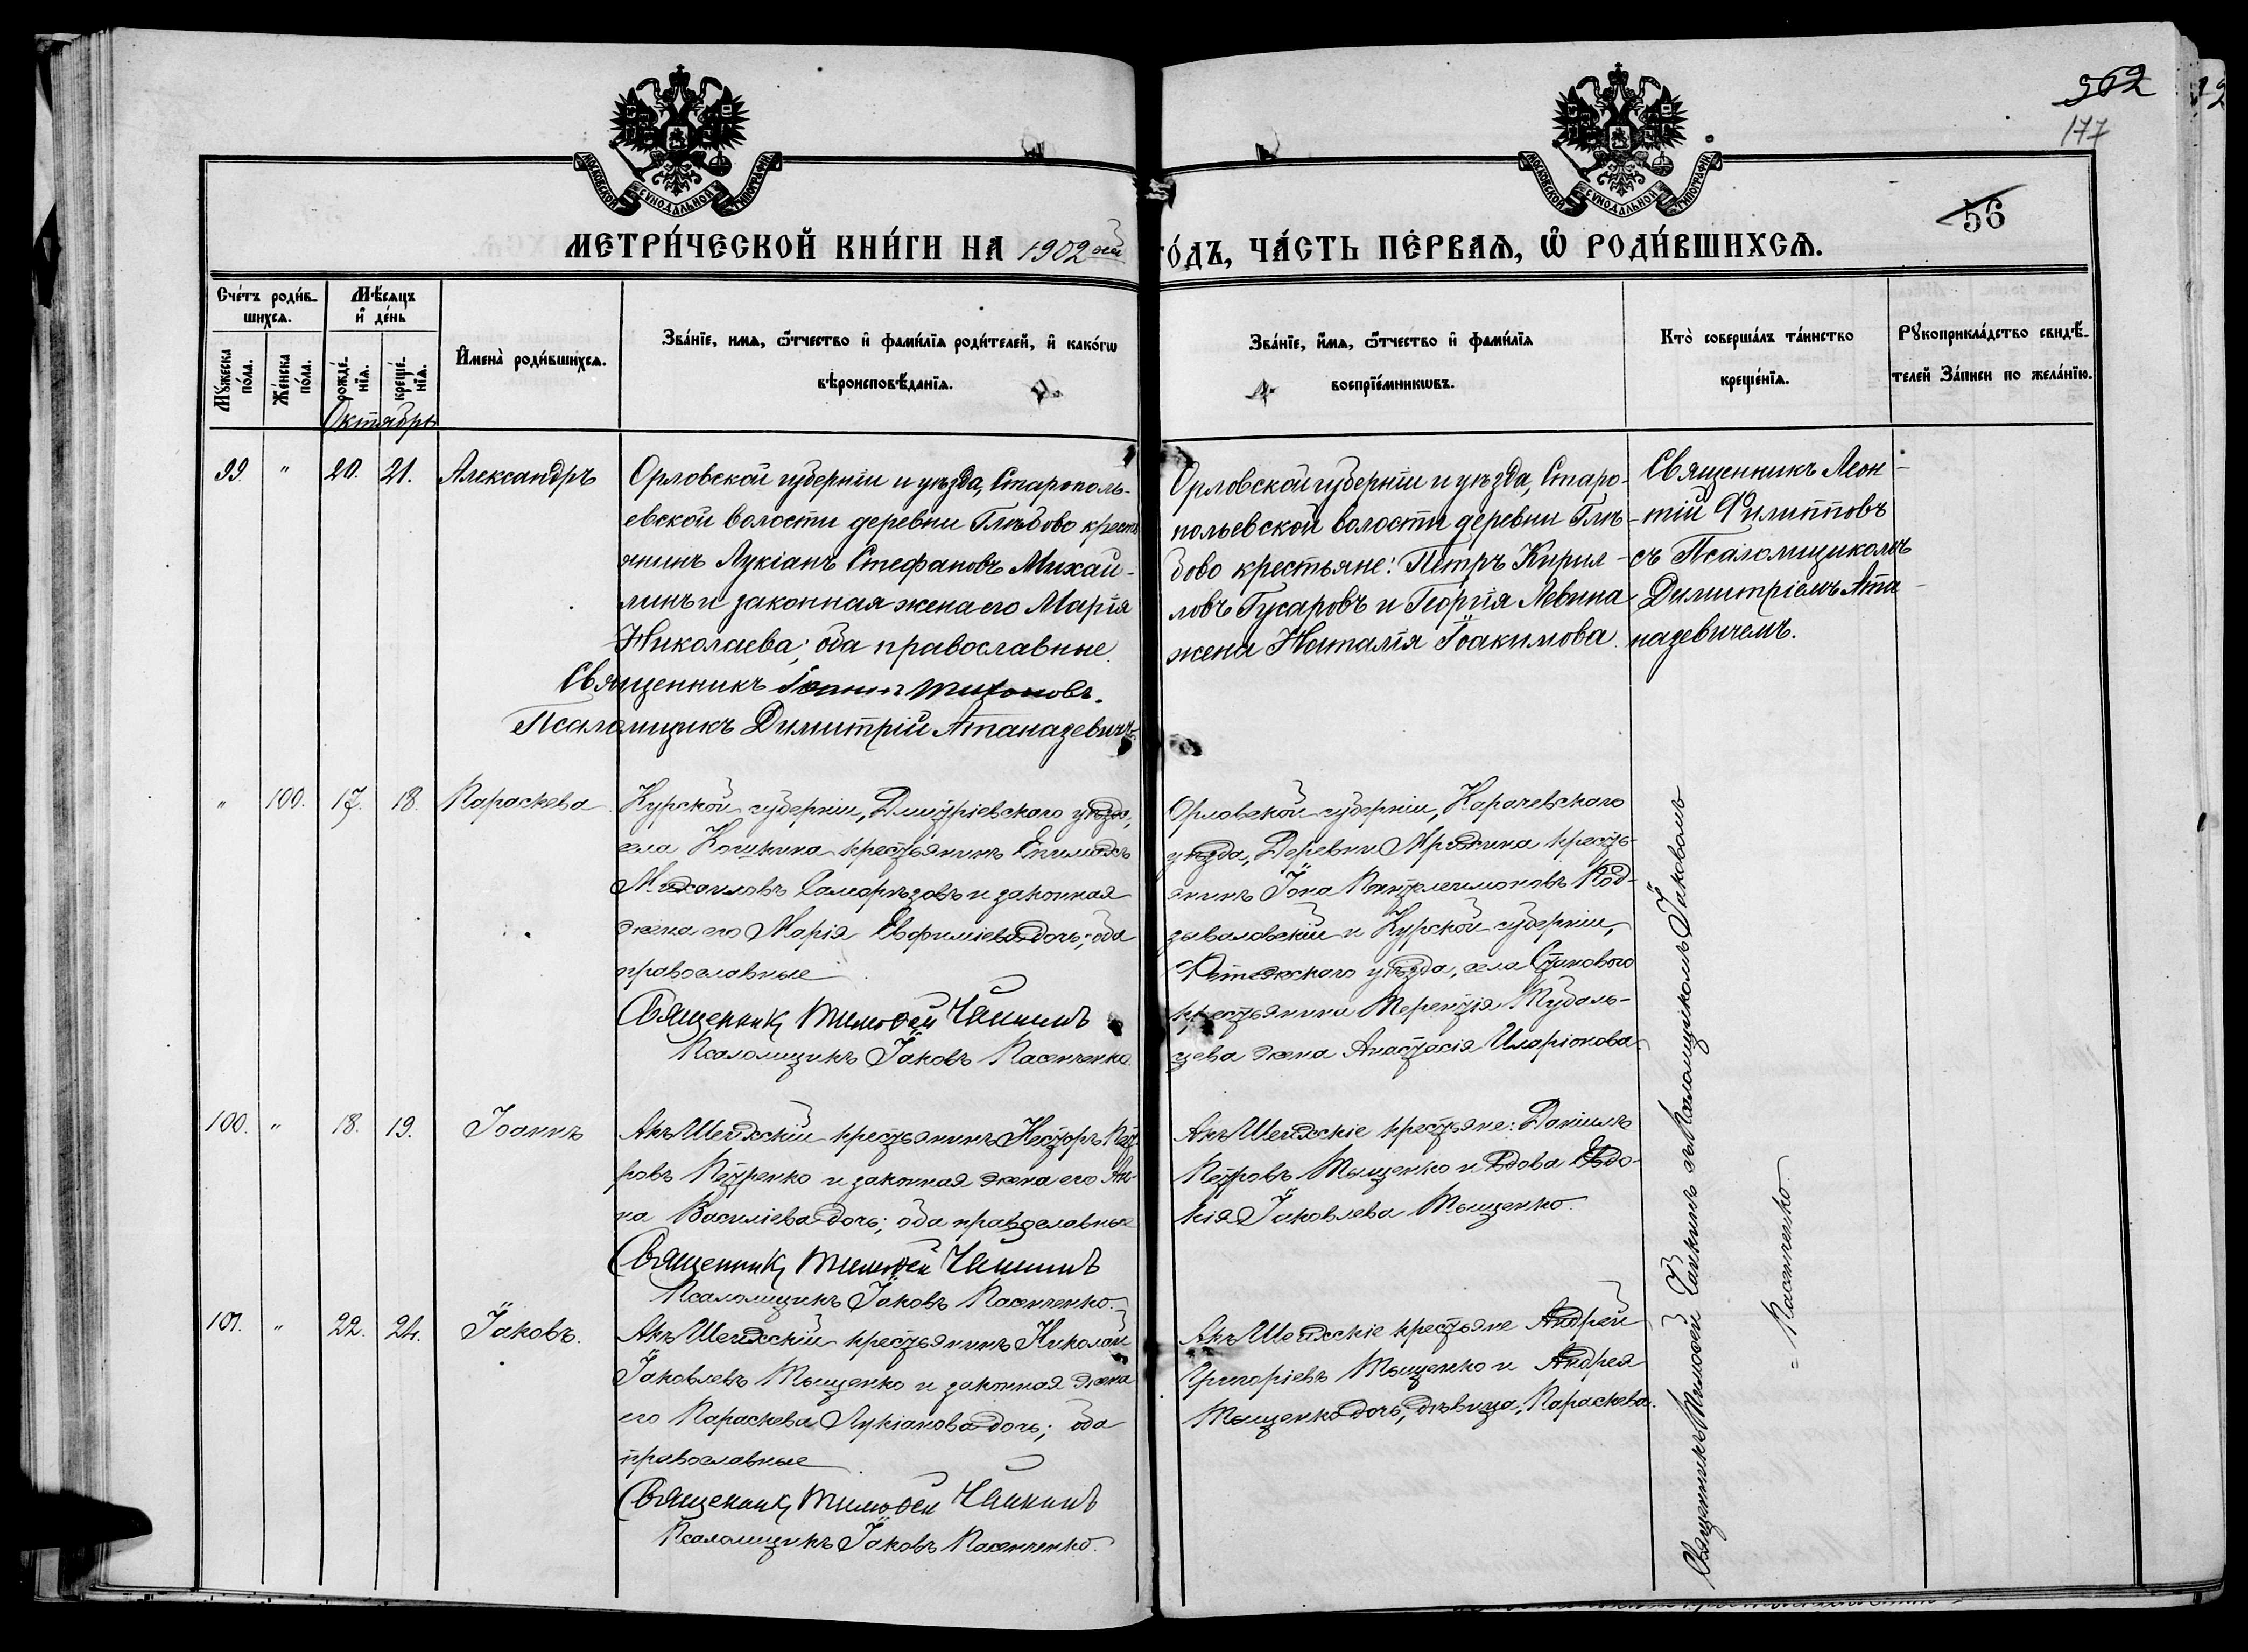 562
177
56
МОСКОВСКОЙ СѴНОДАЛЬНОЙ ТИПОГРАФІИ
МОСКОВСКОЙ СѴНОДАЛЬНОЙ ТИПОГРАФІИ
МЕТРИ́ЧЕСКОЙ КНИ́ГИ НА 1902 ой
ГО́ДЪ, ЧА́СТЬ ПЕ́РВАѦ, Ѡ҆ РОДИ́ВШИХСѦ.
Сче́тъ роди́в-
шихсѧ.
Мꙋжеска по́ла.
Же́нска по́ла.
Мѣ́сѧцъ и҆ де́нь
рожде́-нїѧ.
креще́-нїѧ.
И҆мена̀ роди́вшихсѧ.
Зва́нїе, имѧ, ѻ҆́тчество и҆ фами́лїѧ роди́телей, и҆ како́гѡ
вѣроисповѣ́данїѧ.
Зва́нїе, и҆́мѧ, ѻ҆́тчество и҆ фами́лїѧ
воспрїе́мникѡвъ.
Кто̀ соверша́лъ та́инство
креще́нїѧ.
Рꙋкоприкла́дство свидѣ́-
телей За́писи по жела́нїю.
Октябрь
99. " 20. 21. Александръ
Орловской губерніи и уѣзда, Старополь-
евской волости деревни Глѣбово кресть
янинъ Лукіанъ Стефановъ Михай-
линъ и законная жена его Марія
Николаева; оба православные.
Священникъ Іоаннъ Тихоновъ.
Псаломщикъ Димитрій Атаназевичъ
Орловской губерніи и уѣзда, Старо-
польевской волости деревни Глѣ-
бово крестьяне: Петръ Кирил-
ловъ Гусаровъ и Георгія Левина
жена Наталія Іоакимова.
Священникъ Леон-
тій Филипповъ
съ Псаломщикомъ
Димитріемъ Ата-
назевичемъ.
" 100. 17. 18. Параскева
Курской губерніи, Дмитріевскаго уѣзда,
села Кошкина крестьянинъ
Михаиловъ Саморѣзовъ и законная
жена его Марія Евфиміева дочь; оба
православные
Священникъ Тимоѳей Чайкинъ
Псаломщикъ Іаковъ Пасенченко.
Орловской губерніи, Карачевскаго
уѣзда, Деревни крестья-
янинъ Іона Пантелеимоновъ Под-
зываловскій и Курской губерніи,
Фатежскаго уѣзда, села
крестьянина Терентія
жена Анастасія Иларіонова.
100. " 18. 19. Іоаннъ
Акъ Шеихскій крестьянинъ Несторъ Пет-
ровъ Петренко и законная жена его Ан-
на Василіева дочь; оба православные
Священникъ Тимоѳей Чайкинъ
Псаломщикъ Іаковъ Пасенченко.
Акъ Шеихскіе крестьяне: Даніилъ
Петровъ Тыщенко и вдова Евдо-
кія Іаковлева Тыщенко.
101. " 22. 24. Іаковъ.
Акъ Шеихскій крестьянинъ Николай
Іаковлевъ Тыщенко и законная жена
его Параскева Лукіанова дочь; оба
православные
Священникъ Тимоѳей Чайкинъ
Псаломщикъ Іаковъ Пасенченко.
Акъ Шеихскіе крестьяне Андрей
Григоріевъ Тыщенко и Андрея
Тыщенко дочь, дѣвица, Параскева.
Священникъ Тимоѳей Чайкинъ съ Псаломщикомъ Іаковомъ
= Пасенченко.